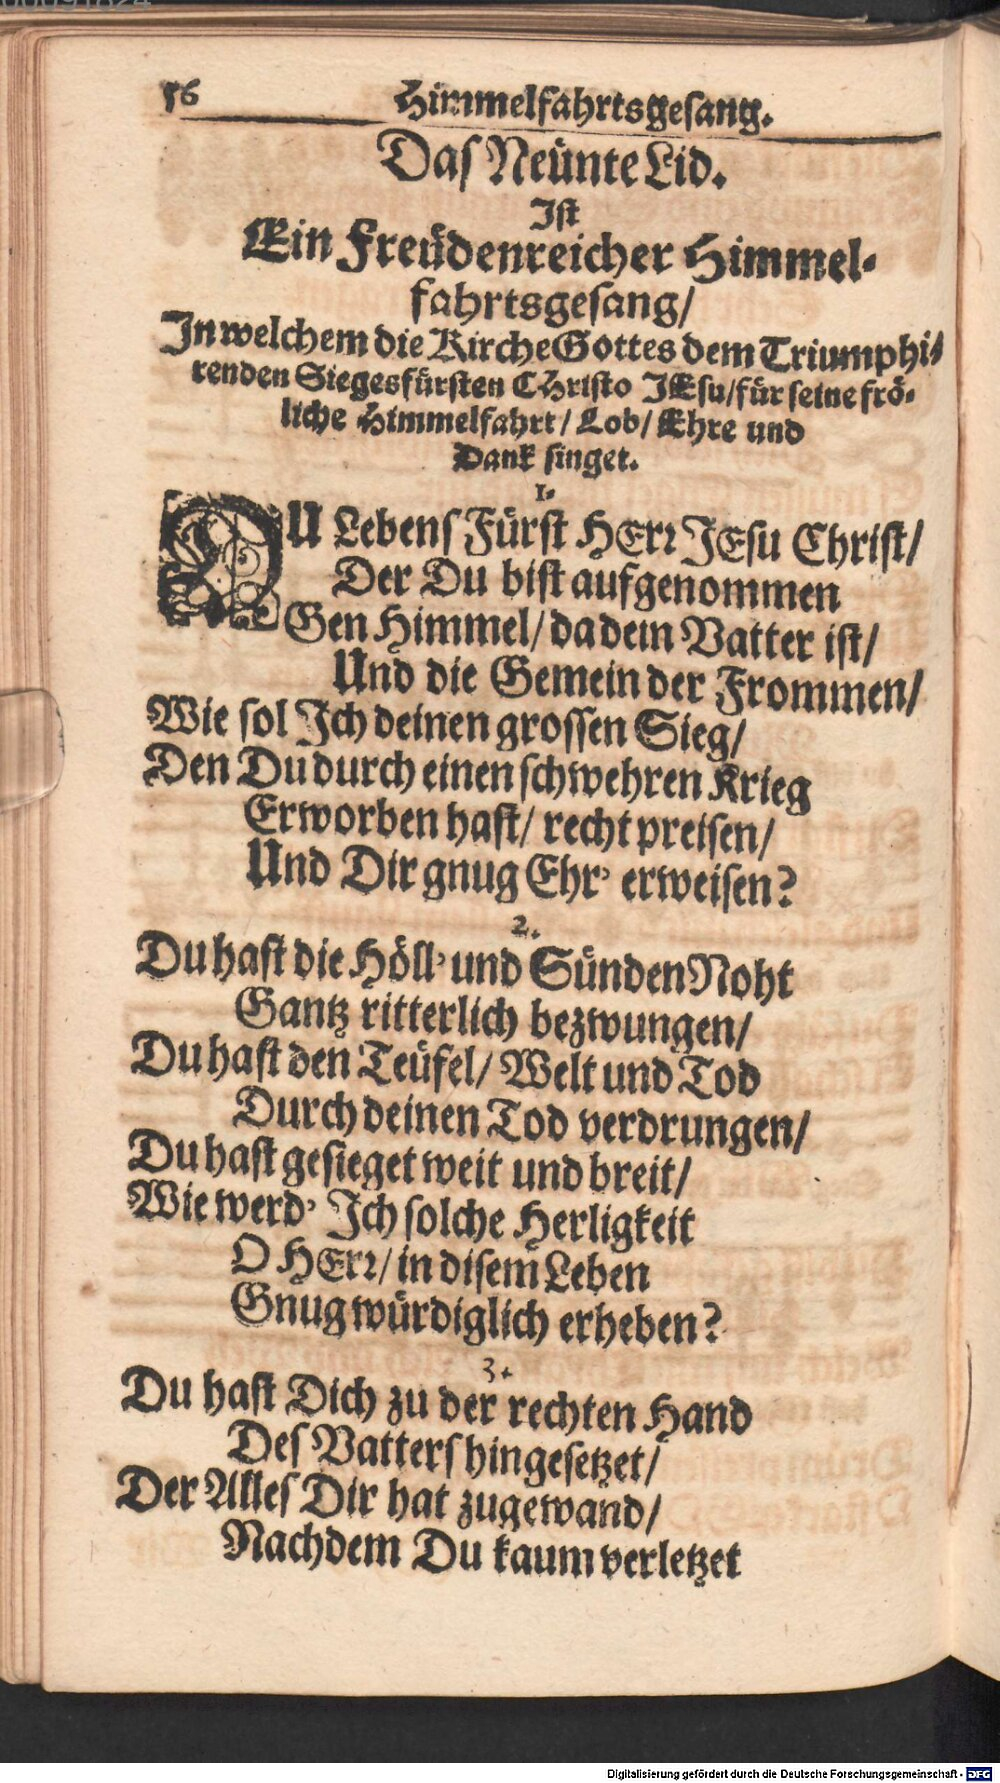 56 Himmelfahrtsgesang.
Das Neünte Lid.
Ist
Ein Freüdenreicher Himmel-
fahrtsgesang/
In welchem die Kirche Gottes dem Triumphi-
renden Siegesfürsten CHristo JEsu/ für seine frö-
liche Himmelfahrt/ Lob/ Ehre und
Dank singet.
1.
DU Lebens Fürst HErr JEsu Christ/
Der Du bist aufgenommen
Gen Himmel/ da dein Vatter ist/
Und die Gemein der Frommen/
Wie sol Ich deinen grossen Sieg/
Den Du durch einen schwehren Krieg
Erworben hast/ recht preisen/
Und Dir gnug Ehr' erweisen?
2.
Du hast die Höll' und Sünden Noht
Gantz ritterlich bezwungen/
Du hast den Teüfel/ Welt und Tod
Durch deinen Tod verdrungen/
Du hast gesieget weit und breit/
Wie werd' Ich solche Herligkeit
O HErr/ in disem Leben
Gnug würdiglich erheben?
3.
Du hast Dich zu der rechten Hand
Des Vatters hingesetzet/
Der Alles Dir hat zugewand/
Nachdem Du kaum verletzet
Digitalisierung gefördert durch die Deutsche Forschungsgemeinschaft - DFG